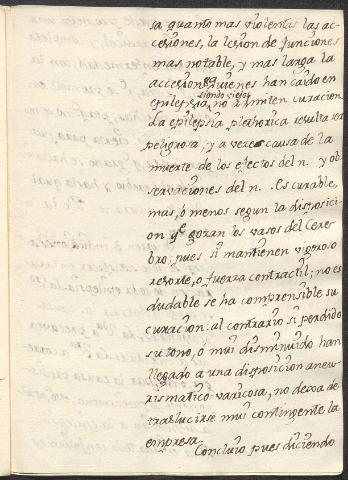 sa quanto mas violentas las ac-
cesiones, la lesion de funciones
mas notable, y mas larga la
accesion. Quienes han caido en
siendo viejos
epilepsia, no admiten curacion.
La epilepsia plethorica resulta ser
peligrosa, y a veces causa de la
muerte de los efectos del n. y ob
servaciones del n. Es curable,
mas, ó menos segun la disposici-
on qe. gozan los vasos del Cere-
bro; pues si mantienen vigoroso
resorte, o fuerza contractil; no es
dudable se ha comprensible su
curacion: al contrario si perdido
su tono, ó mui disminuido han
llegado a una disposicion aneu-
rismatico varicosa, no dexa de
traslucirse mui contingente la
empresa.
Concluio pues diciendo